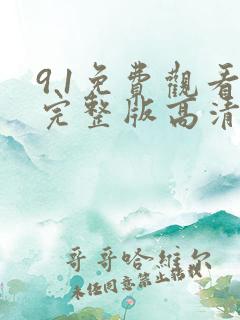 9.1免費觀看
完整版高清
哥哥哈維尔
未经同意禁止转载